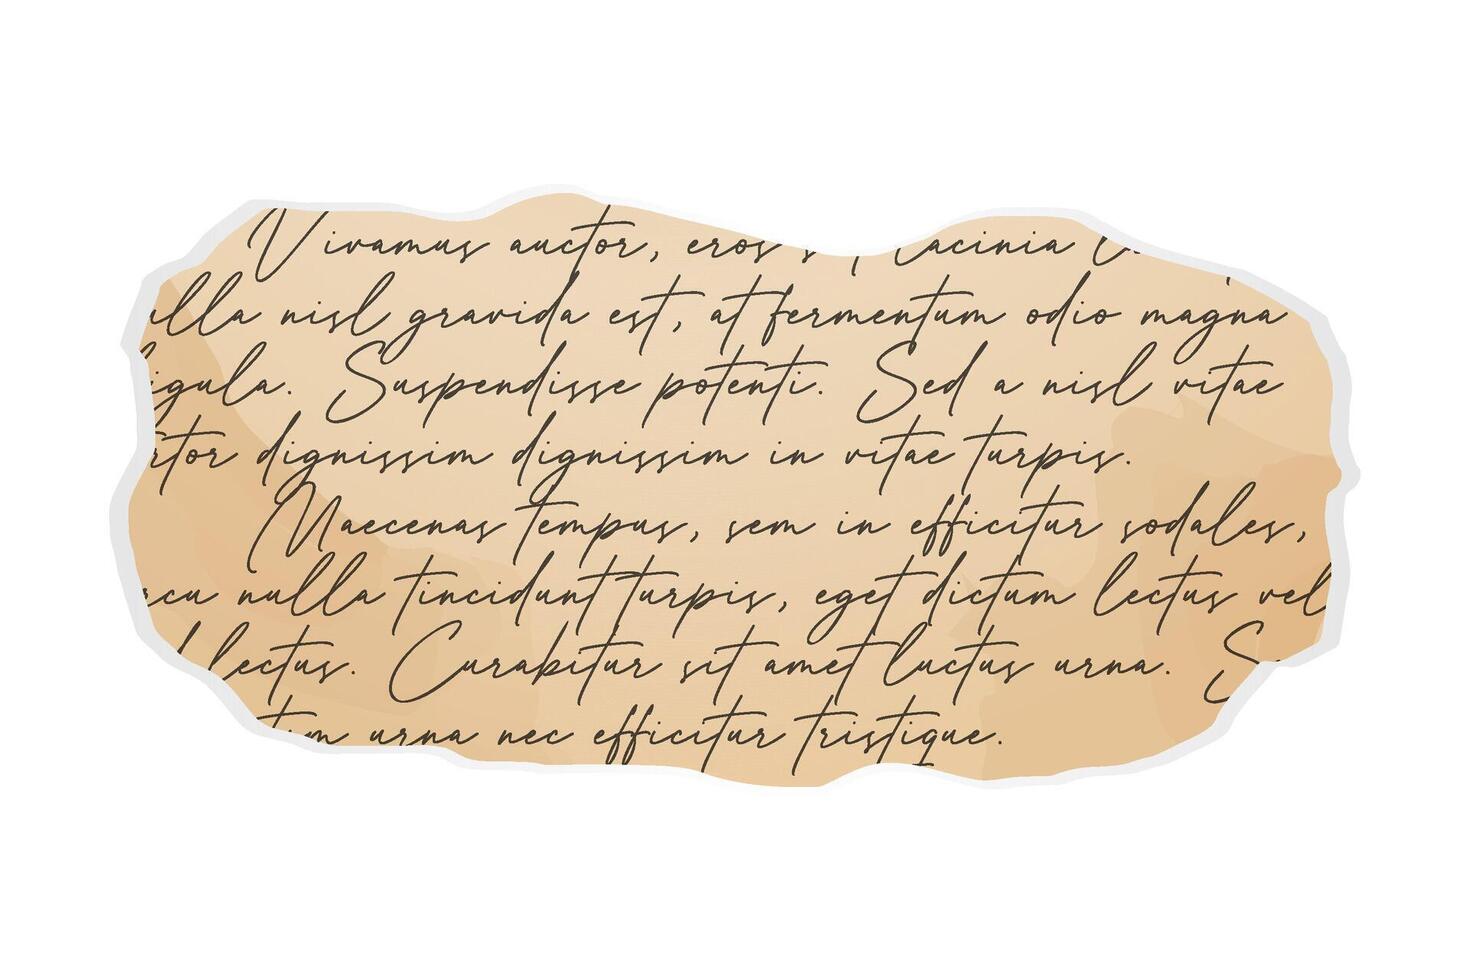 Vivamus auctor, eros s lacinia
ulla nisl gravida est, at fermentum odio magna
ligula. Suspendisse potenti. Sed a nisl vitae
rtor dignissim dignissim in vitae turpis.
Maecenas tempus, sem in efficitur sodales,
rcu nulla tincidunt turpis, eget dictum lectus vel
lectus. Curabitur sit amet luctus urna. S
tum urna nec efficitur tristique.